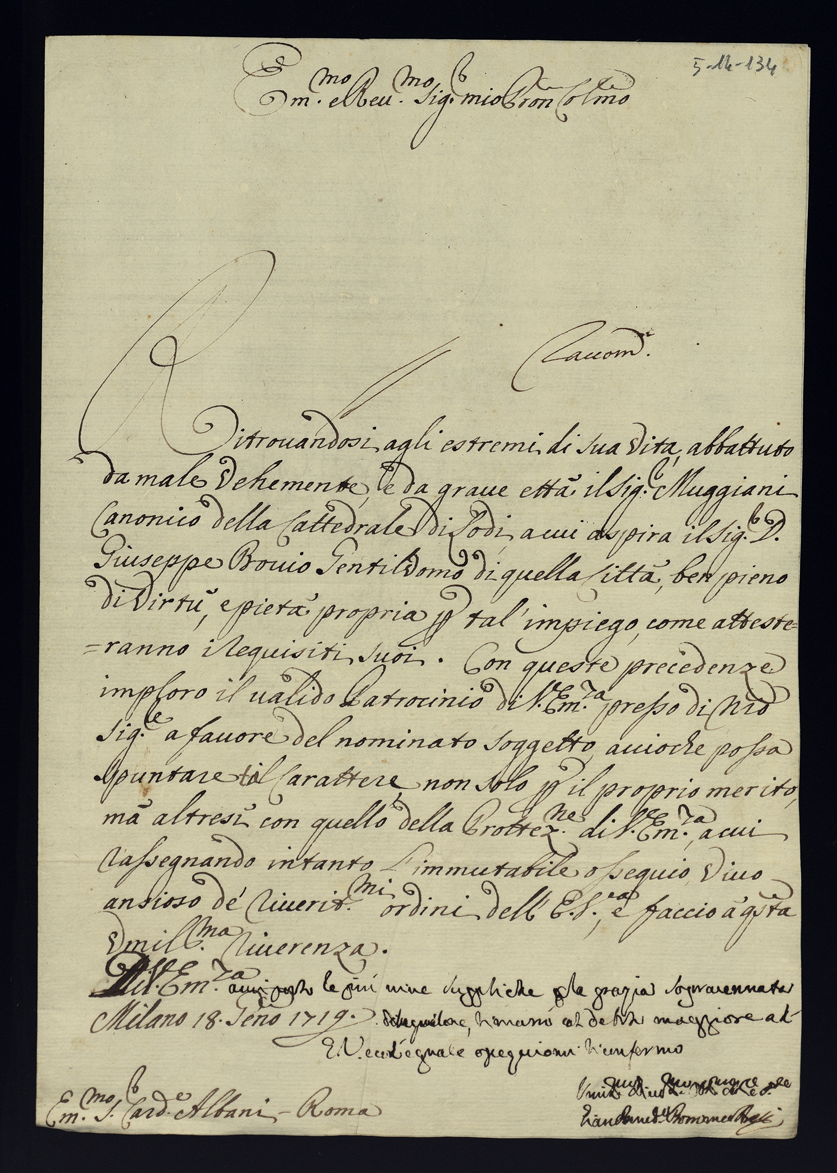 5-14-134
Em.mo e Reu.mo Sig.r mio Pron Colmo
Raccom.ne
Ritrouandosi agli estremi di sua Vita, abbattuto
da male Vehemente, e da graue ettà il Sig.r Muggiani
Canonico della Cattedrale di Lodi, a cui aspira il Sig.r D.
Giuseppe Bouio Gentilhomo di quella Città, ben pieno
di Virtù, e pietà propria p tal' impiego, come atteste=
=ranno i Requisiti suoi. Con queste precedenze
imploro il ualido Patrocinio di V. Em.za presso di Nro
Sig.re a fauore del nominato soggetto, accioche possa
spuntare il Carattere non solo p il proprio merito,
mà altresì con quello della Prottez.ne di V. Em.za, a cui
rassegnando intanto l'immutabile ossequio Viuo
ansioso de' riuerit.mi ordini dell' E.V., e faccio a qsta
Vmil.ma riuerenza.
Di V. Em.za le più uiue suppliche p la grazia soprauennata
Milano 18. Gen.o 1719. maggiore
E.V. infermo
Em.mo S.r Card.e Albani - Roma